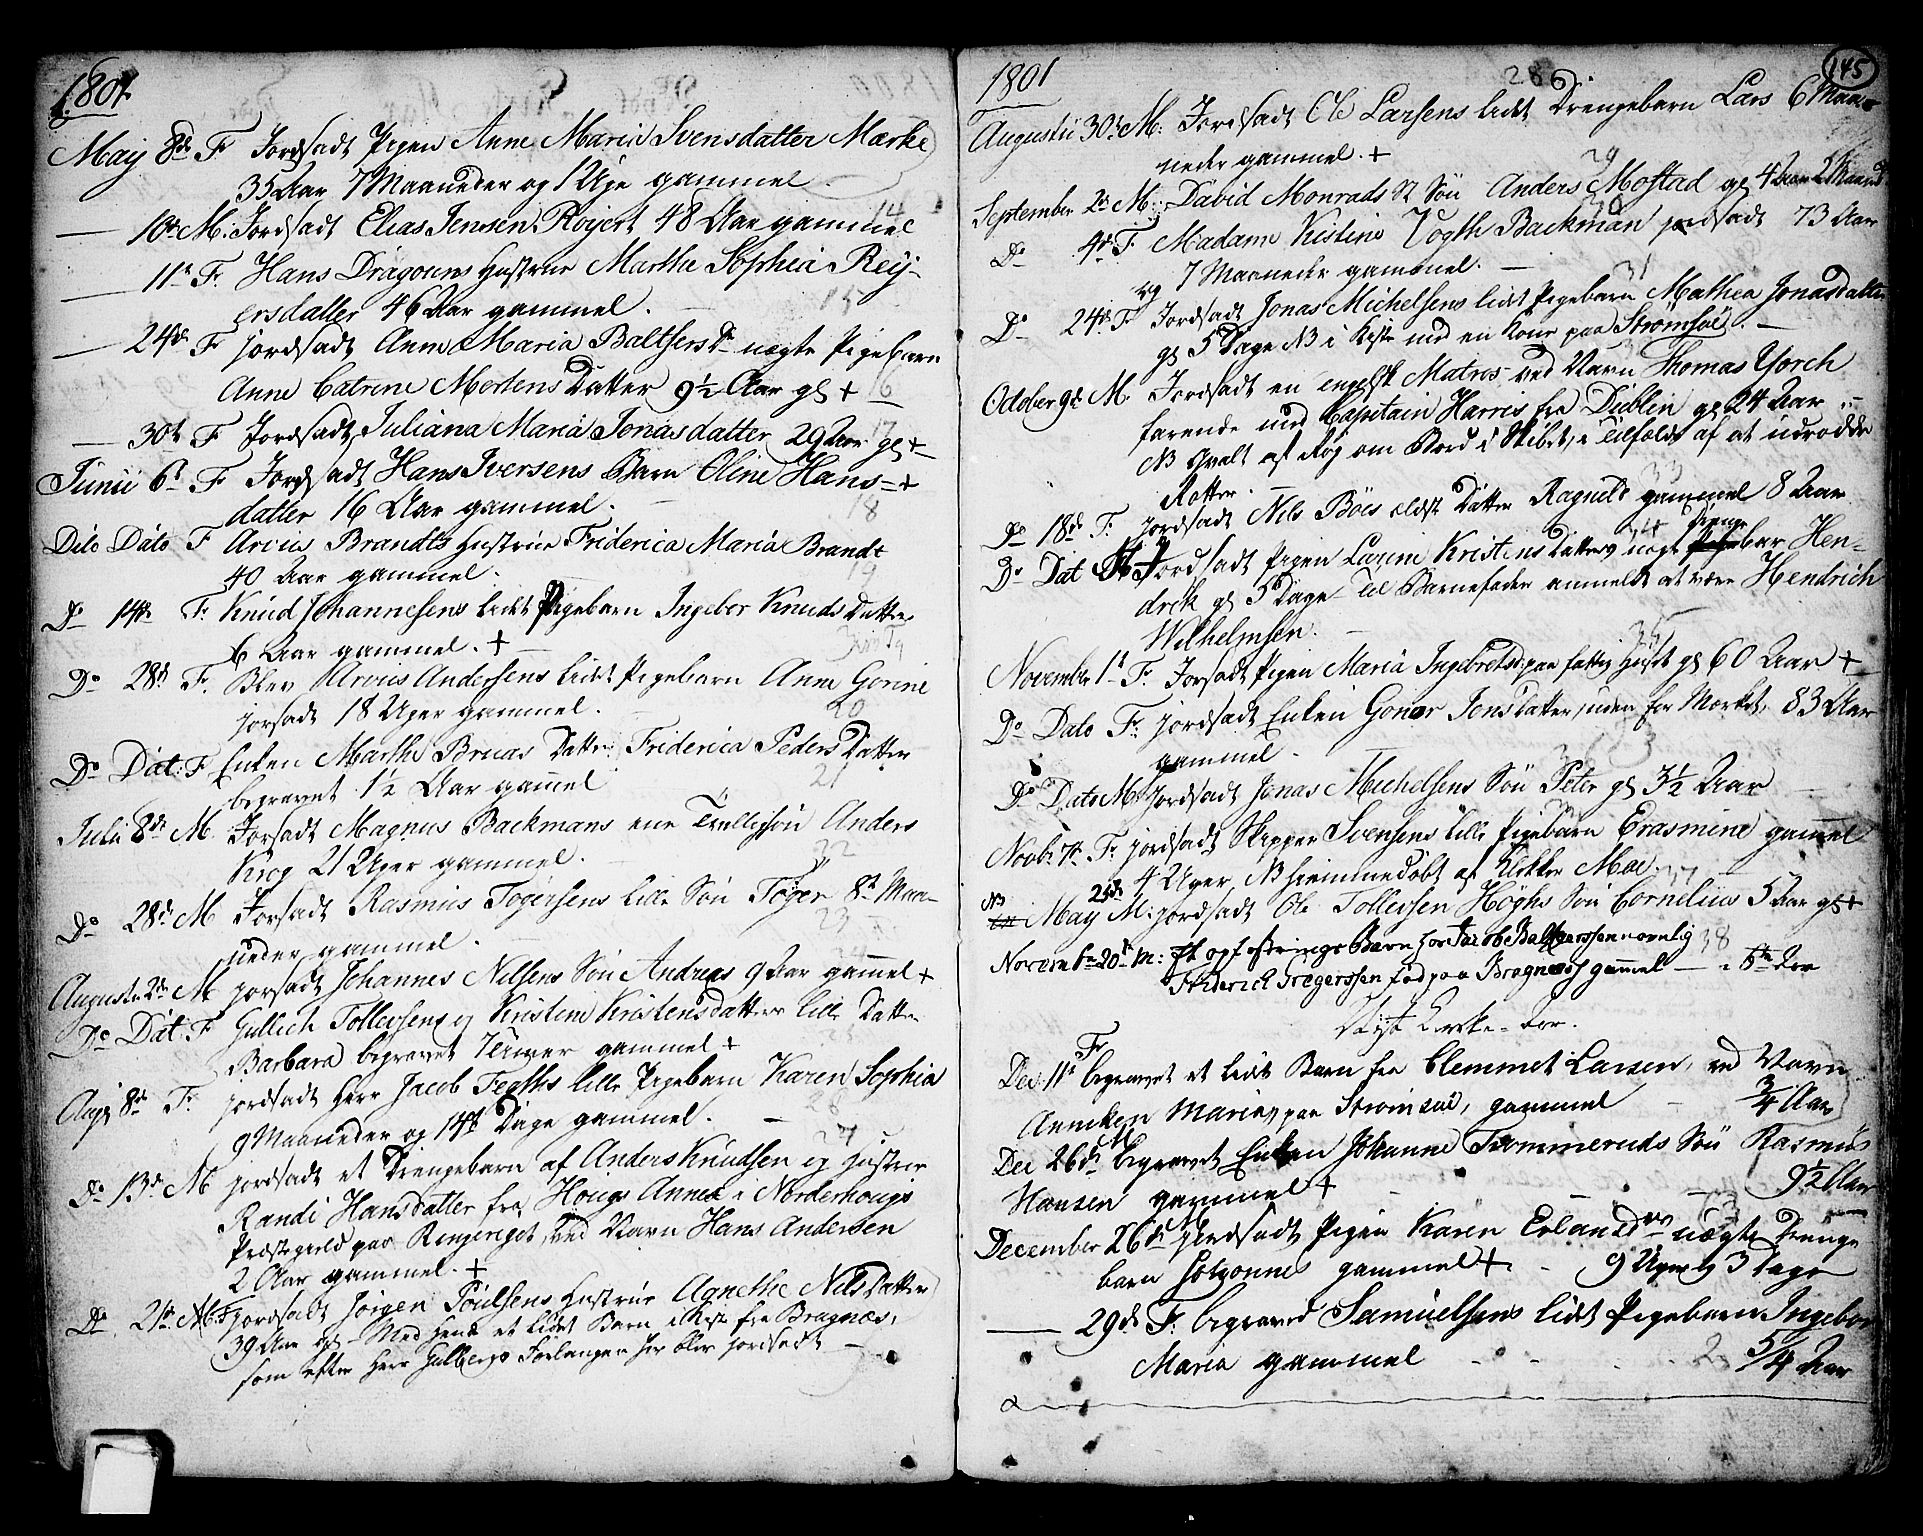 1801.
May 8de F Jordsadt Pigen Anne Maria Svensdatter Mærke
35 Aar 7 Maaneder og 1 Uge gammel.
— 10de M. Jordsadt Elias Jensen Röyert 48 Aar gammel
14
— 11te F. Hans Dragouns Hustrue Martha Sophia Rey-
ersdatter 46 Aar gammel.
15
— 24de F jordsadt Anne Maria Baltsersdr nægte Pigebarn
Anne Catrene Mortens Datter 9½ Aar gl +
16
— 30t F Jordsadt Juliana Maria Jonasdatter 29 Aar gl +
17
Junii 6t F Jordsadt Hans Iversens Barn Oline Hans- +
datter 16 Aar gammel.
18
Dito Dato F Arvus Brandts Hustrue Friderica Maria Brandt
40 Aar gammel.
19
Do 14de F. Knud Johannesens lidet Pigebarn Ingebor Knuds Datter
6 Aar gammel. +
Do 28de F. Blev Arvus Andersens lidet Pigebarn Anne Gorine
jorsadt 18 Uger gammel.
20
Do Dat: F Enken Marthe Bruas Datter Friderica Peders Datter
begravet 1½ Aar gammel
21
Julii 8de M. Jorsadt Magnus Backmans ene Tvillingsön Anders
Krog 21 Uger gammel.
22
Do 28de M Jorsadt Rasmus Togersens lille Sön Töger 8te Maa-
neder gammel.
23
Augusti 2de M jorsadt Johannes Nilsens Sön Andreas 9 Aar gammel +
Do Dat: F Gullich Tollevsens og Kirstine Kristensdatters lille Datter
Barbara begravet 7 Uger gammel +
Aug 8de F. jordsadt Herr Jacob Fegths lille Pigebarn Karen Sophia
9 Maaneder og 14de Dage gammel.
26
Do 13de M jordsadt et Drengebarn af Anders Knudsen og Hustrue
27
Randi Hansdatter fra Hougs Annex i Norderhougs
Præstegield paa Ringeriget, ved Navn Hans Andersen
2 Aar gammel. +
Do 21de jordsadt Jörgen Poulsens Hustrue Agnethe Nils Datter
39 Aar gl. Med hende et lidet Barn i Kiste fra Bragnæs,
som efter Herr Gulbergs Forlangen her blev jordsadt —
1801
145
28
Augustii 30de M: Jordsadt Ole Larsens lidet Drengebarn Lars 6 Maa-
neder gammel. +
29
September 2de M: David Monrads Sön Anders Mostad gl 4 Aar 2 Maand
30
Do 4de F. Madame Kistine Vogth Backman jordsadt 73 Aar
og 7 Maaneder gammel. —
31
Do 24de F. Jordsadt Jonas Michelsens lidet Pigebarn Mathea Jonasdatter
gl 5 Dage NB i Kiste med en Kone paa Strömsöe. —
October 9de M. Jordsadt en engelsk Matros ved Navn Thomas Yorch
farende med Capitain Harris fra Dublin gl 24 Aar
NB qvalt af Rög om Bord i Skibet, i Tilfælde af at udrödde
Rotter. —
33
Do 18de F. jordsadt Nils Böes eldste Datter Ragnild gammel 8 Aar
34
Do Dat M Jordsadt Pigen Larine Kristens Datters uægt Drengebar Hen-
drik gl 5 Dage Til Barnefader anmeldt at være Hendrich
Wilhelmsen. —
35
November 1t F. Jorsadt Pigen Maria Ingebretsd: paa fattig Huset gl 60 Aar +
Do Dato F. jordsadt Enken Goner Jens Datter, uden for Mærket, 83 Aar
gammel.
36
Do Dato M: jordsadt Jonas Michelsens Sön Peter gl 3½ Aar
Novbr 7de F. jordsadt Skipper Svensens lille Pigebarn Erasmine gammel
4 Uger, NB hiemmedöbt af Klokker Moe.
37
NB May 25de M: jordsadt Ole Tollevsen Höghs Sön Cornelius 5 Aar gl +
Novem br 20de M: Et opfostrings Barn hos Jacob Baltzerssen navnlig
38
Friderich Gregerssen föd paa Bragnæss gammel — 8te Aar
Nyt Kirke-Aar.
Dec 11te F begravet et lidet Barn fra Clemmet Larsen, ved Navn
Anneken Maria, paa Strömsöe, gammel — 3/4 Aar
Dec 26de M begravet Enken Johanne Trommeruds Sön Rasmus
Hansen gammel + — 9½ Aar
December 26de M Jordsadt Pigen Karen Erlandsdrs uægte Drenge
barn Johannes gammel + - 9 Uger og 3 Dage
— 29de F. begraved Samuelsens lidet Pigebarn Ingebor
Maria gammel - - - 5/4 Aar